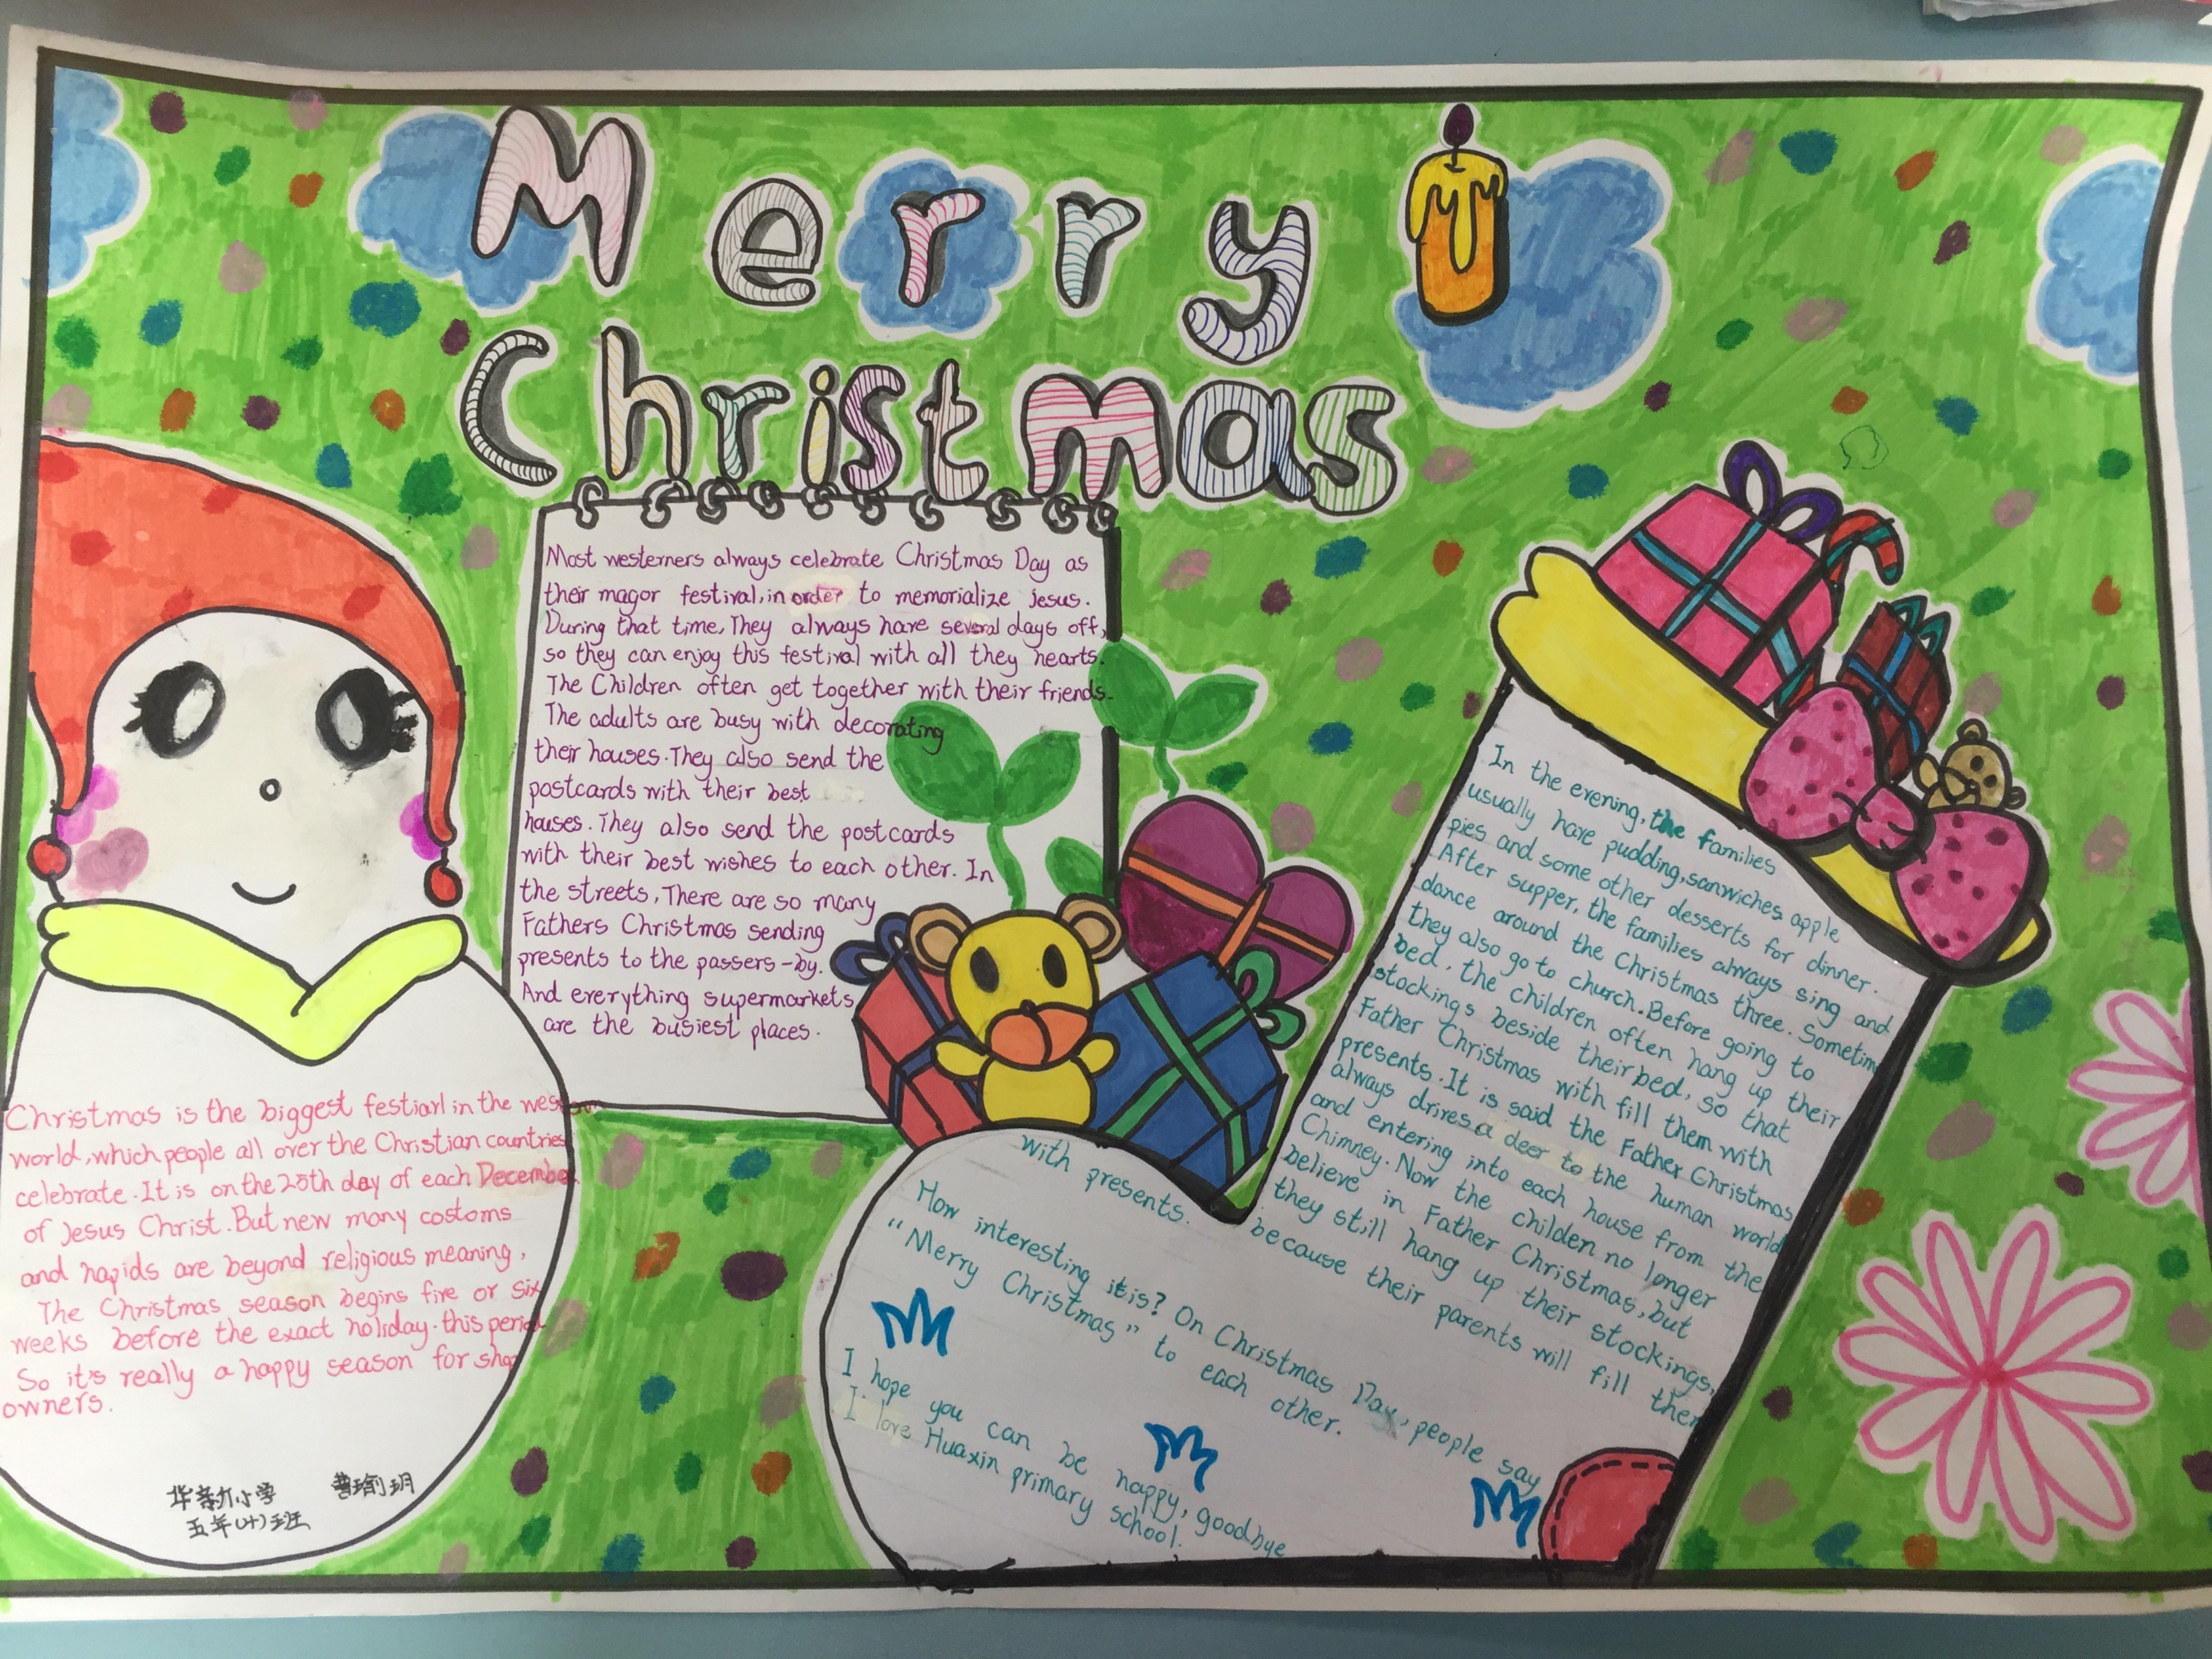 Merry
Christmas
Most westerners always celebrate Christmas Day as
their magor festival, in order to memorialize jesus.
During that time, They always have several days off,
so they can enjoy this festival with all they hearts.
The Children often get together with their friends.
The adults are busy with decorating
their houses. They also send the
postcards with their best
houses. They also send the postcards
with their best wishes to each other. In
the streets, There are so many
Fathers Christmas sending
presents to the passers-by.
And everything supermarkets
are the busiest places.
Christmas is the biggest festiarl in the western
world, which people all over the Christian countries
celebrate. It is on the 25th day of each December
of Jesus Christ. But new many costoms
and hapids are beyond religious meaning,
The Christmas season begins five or six
weeks before the exact holiday. this period
So it's really a happy season for shop
owners.
华新小学 曹瑜玥
五年(十)班
In the evening, the families
usually have pudding, sanwiches apple
pies and some other desserts for dinner.
After supper, the families always sing and
dance around the Christmas three. Sometim
they also go to church. Before going to
bed, the children often hang up their
stockings beside their bed, so that
Father Christmas with fill them with
presents. It is said the Father Christmas
always drives a deer to the human world
and entering into each house from the
Chimney. Now the childen no longer
believe in Father Christmas, but
they still hang up their stockings,
because their parents will fill them
with presents.
How interesting it is? On Christmas Day, people say
"Merry Christmas" to each other.
I hope you can be happy, goodbye
I love Huaxin primary school.